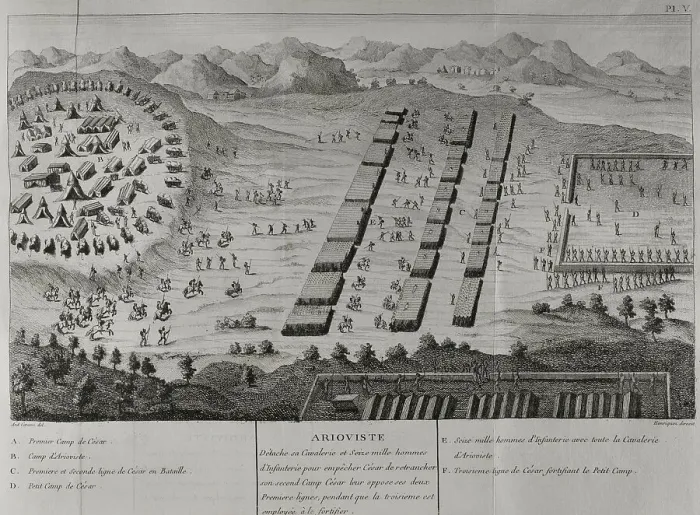 PL. V.
Ant Gravni del.
Henriquez direxit
A. Premier Camp de César.
B. Camp d'Arioviste.
C. Premiere et Seconde ligne de César en Bataille.
D. Petit Camp de César.
ARIOVISTE
Détache sa Cavalerie et Seize mille hommes
d'Infanterie pour empêcher César de retrancher
son second Camp César leur oppose ses deux
Premiere lignes, pendant que la troisieme est
employée à le fortifier.
E. Seize mille hommes d'Infanterie avec toute la Cavalerie
d'Arioviste.
F. Troisieme ligne de César fortifiant le Petit Camp.